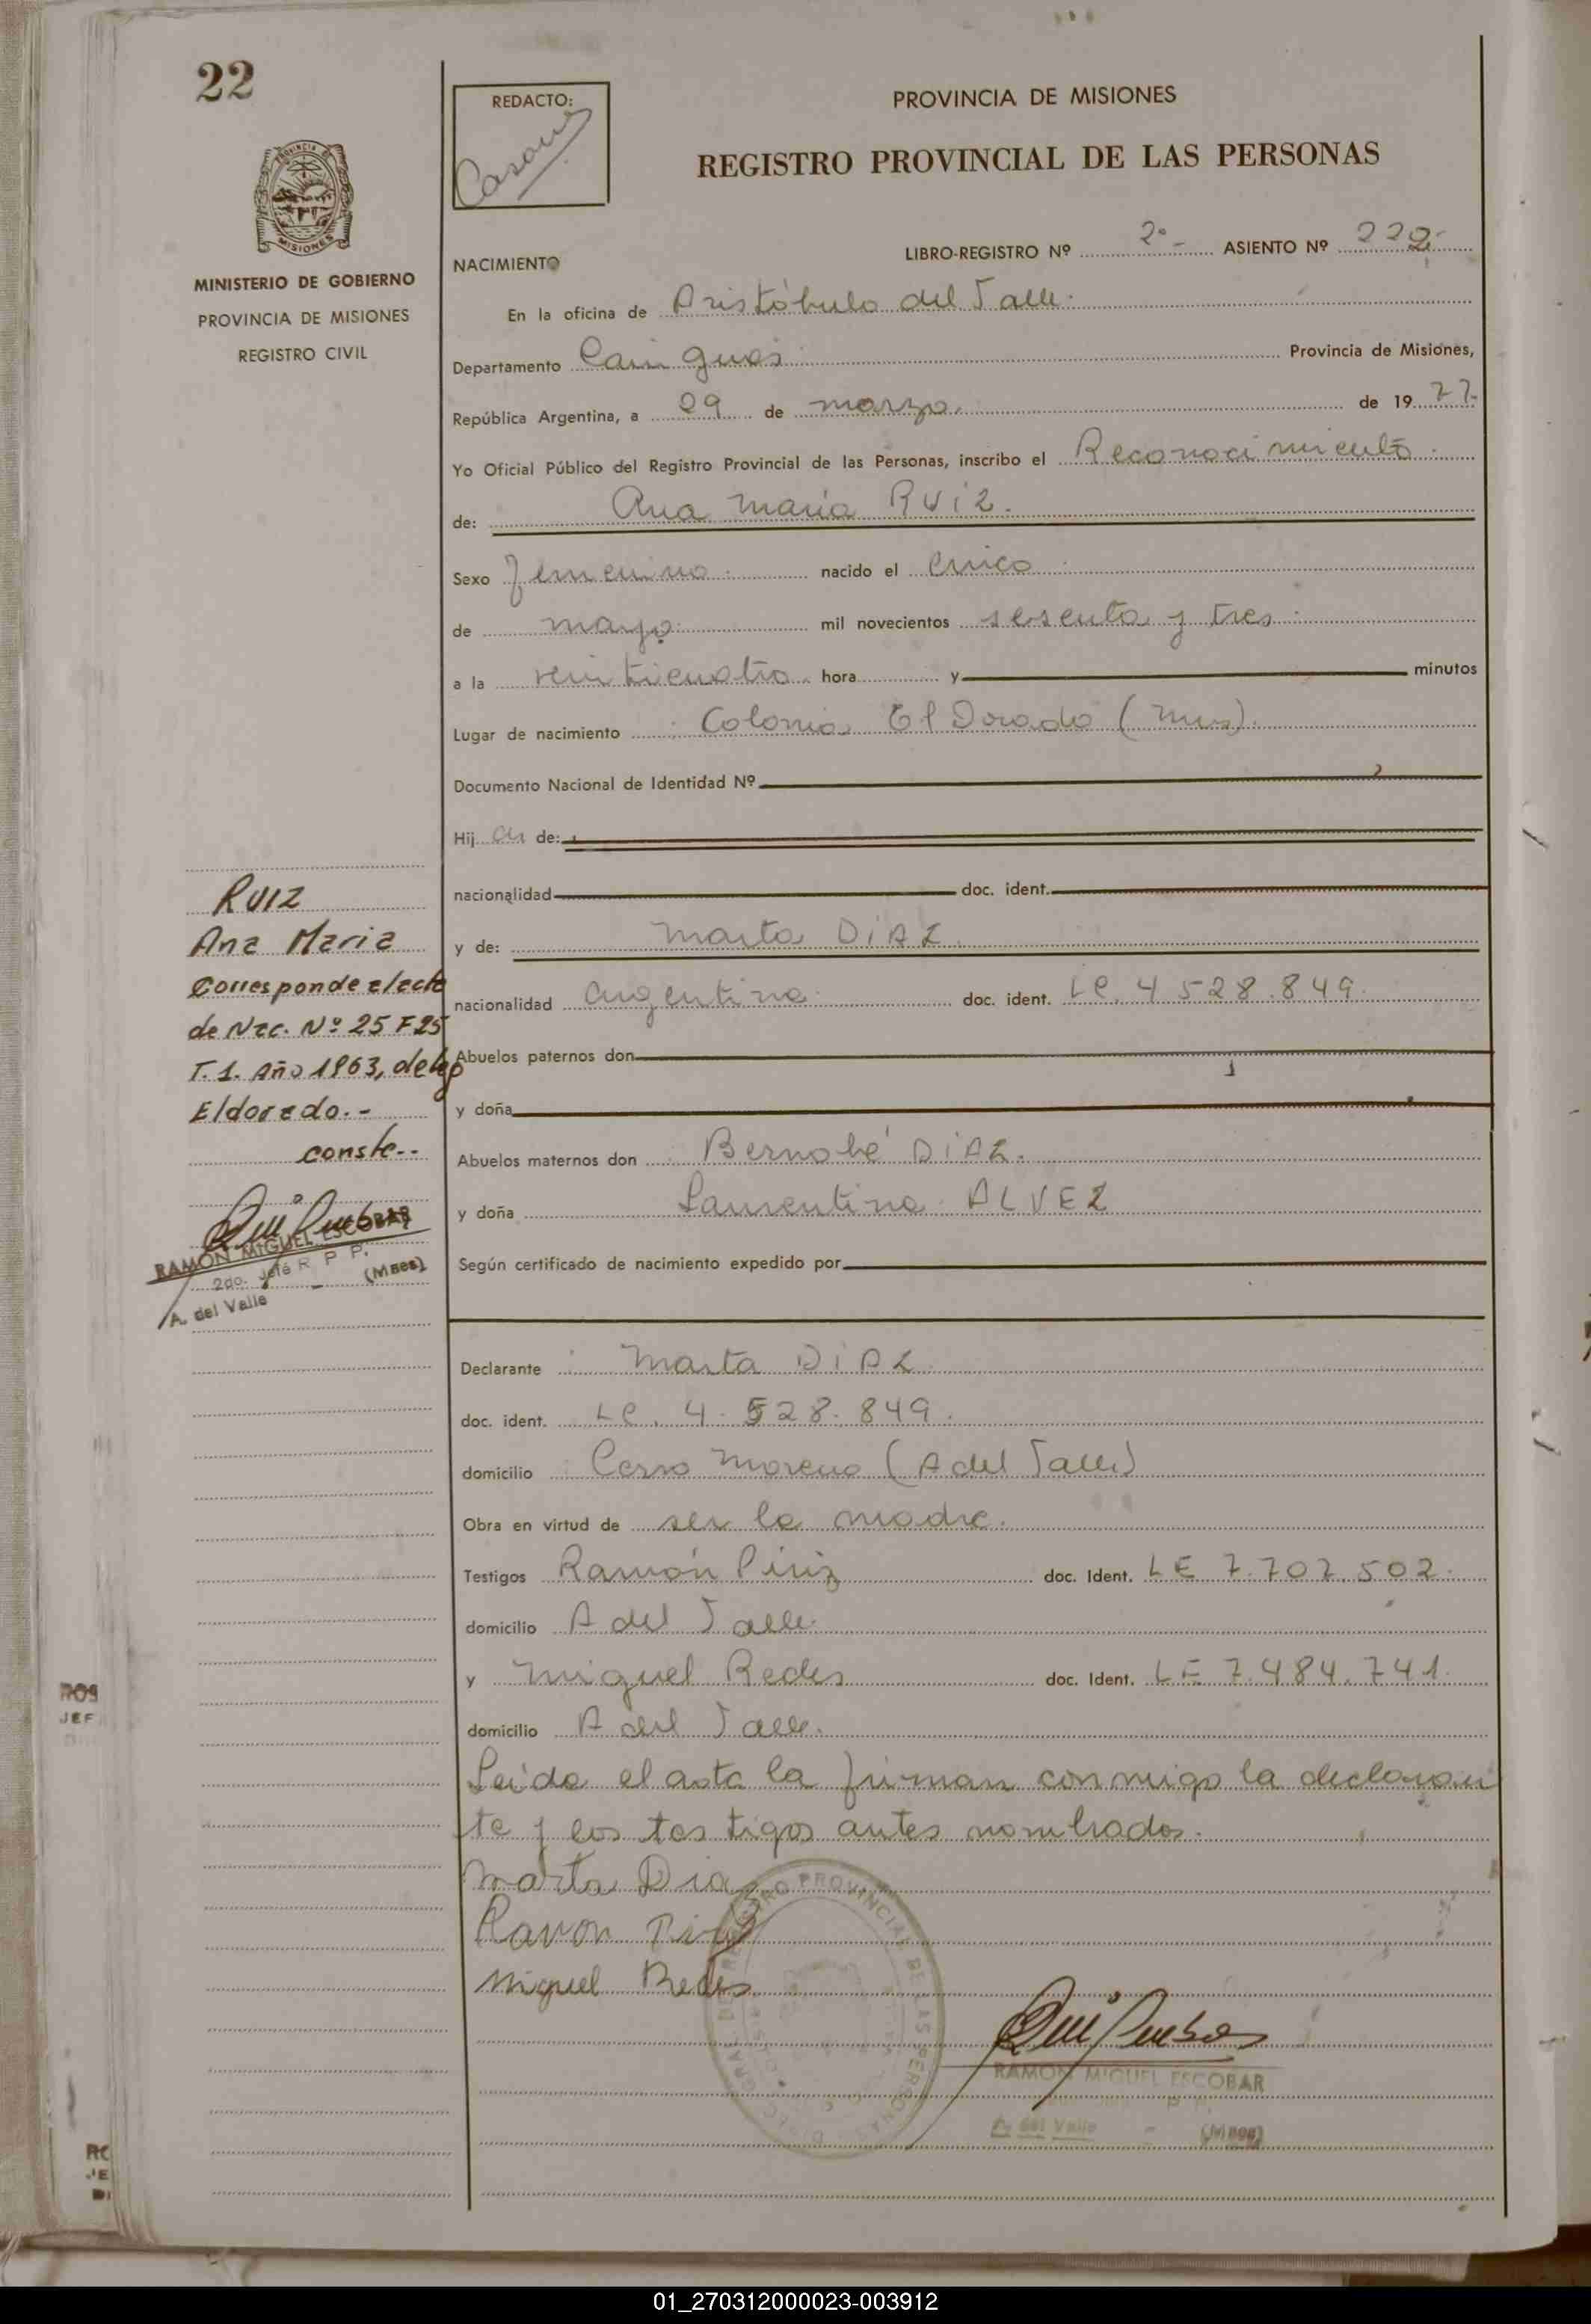 22
REDACTO:
PROVINCIA DE MISIONES
REGISTRO PROVINCIAL DE LAS PERSONAS
PROVINCIA DE
MISIONES
MINISTERIO DE GOBIERNO
PROVINCIA DE MISIONES
REGISTRO CIVIL
LIBRO-REGISTRO Nº 2º- ASIENTO Nº 222-
NACIMIENTO
En la oficina de Aristóbulo del Valle.
Departamento Cainguas Provincia de Misiones,
República Argentina, a 29 de marzo. de 19 77-
Yo Oficial Público del Registro Provincial de las Personas, inscribo el Reconocimiento.
de: Ana Maria RUIZ.
Sexo femenino. nacido el cinco.
de mayo. mil novecientos sesenta y tres.
a la veinticuatro. hora y minutos
Lugar de nacimiento Colonia El Dorado (Mnes).
Documento Nacional de Identidad Nº
Hij a de:
nacionalidad doc. ident.
y de: Marta DIAZ.
nacionalidad argentina. doc. ident. LC. 4 528.849.
Abuelos paternos don
y doña
Abuelos maternos don Bernabé DIAZ.
y doña Laurentina ALVEZ
Según certificado de nacimiento expedido por
RUIZ
Ana Maria
Corresponde al acta
de Nac. Nº 25 F. 25
T. 1. Año 1963, de
Eldorado.-
conste--
RAMON MIGUEL ESCOBAR
2do. Jefe R P P.
A. del Valle (Mnes)
Declarante Marta DIAZ
doc. ident. LC. 4. 528. 849.
domicilio Cerro Moreno (A del Valle)
Obra en virtud de ser la madre.
Testigos Ramón Piriz doc. Ident. LE 7.707.502.
domicilio A del Valle.
y Miguel Redes doc. Ident. LE 7.484.741.
domicilio A del Valle.
Leida el acta la firman conmigo la declaran
te y los testigos antes nombrados.
Marta Diaz
Ramon Piriz
Miguel Redes
RAMON MIGUEL ESCOBAR
A. del Valle - (Mnes)
ROS
JEF
RO
JE
01_270312000023-003912